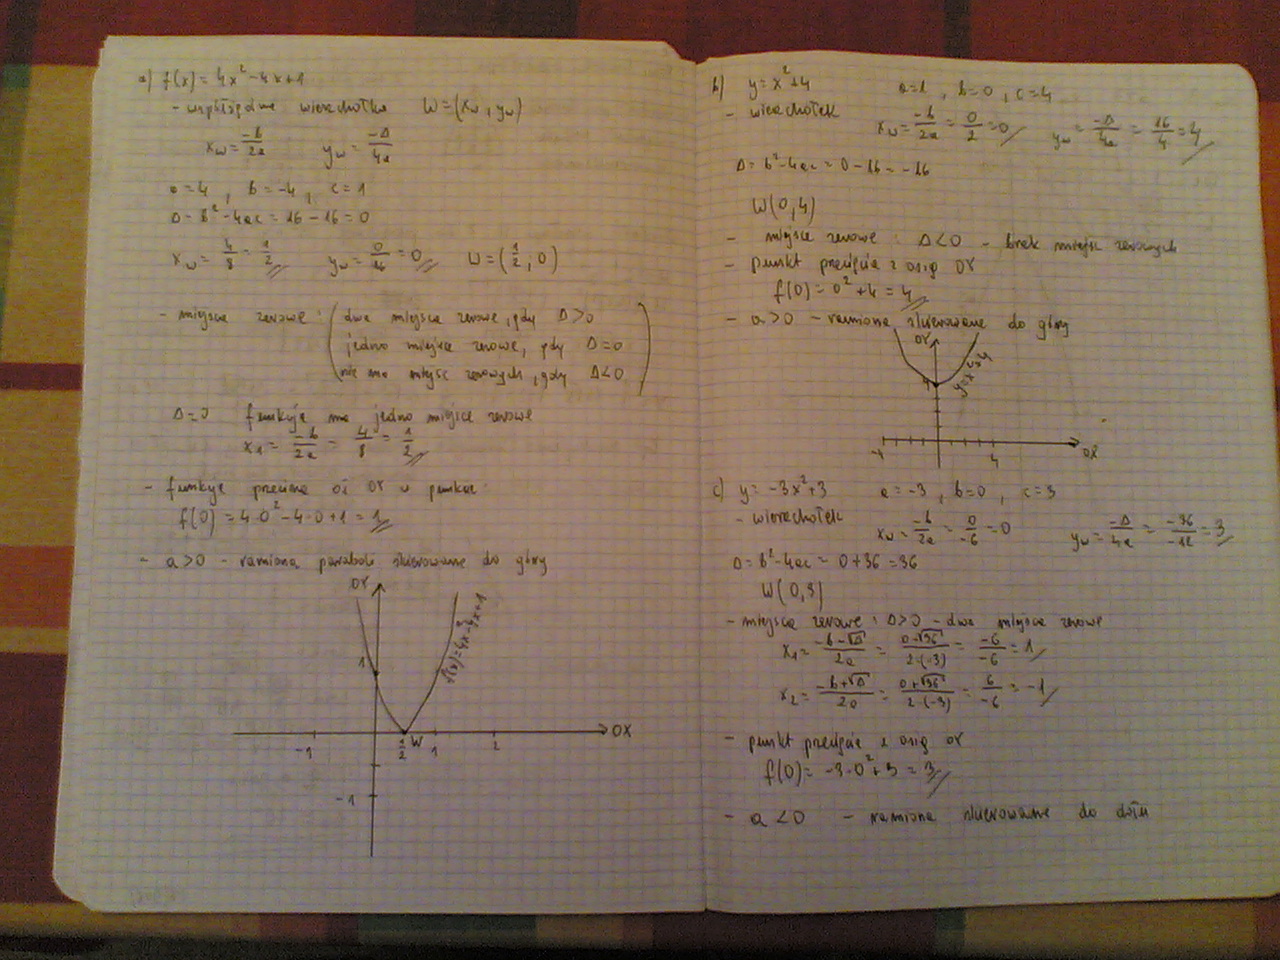 a) f(x) = 4x² - 4x + 1
- współrzędne wierzchołka W = (xw, yw)
xw = -b/2a yw = -Δ/4a
a = 4, b = -4, c = 1
Δ = b² - 4ac = 16 - 16 = 0
xw = 4/8 = 1/2 yw = 0/16 = 0 W = (1/2, 0)
- miejsca zerowe: (dwa miejsca zerowe, gdy Δ > 0
jedno miejsce zerowe, gdy Δ = 0
nie ma miejsc zerowych, gdy Δ < 0)
Δ = 0 funkcja ma jedno miejsce zerowe
x1 = -b/2a = 4/8 = 1/2
- funkcja przecina oś OY w punkcie
f(0) = 4·0² - 4·0 + 1 = 1
- a > 0 - ramiona paraboli skierowane do góry
OY
f(x) = 4x² - 4x + 1
1
-1 1/2 W 1 2 OX
-1
b) y = x² + 4 a = 1, b = 0, c = 4
- wierzchołek xw = -b/2a = 0/2 = 0 yw = -Δ/4a = 16/4 = 4
Δ = b² - 4ac = 0 - 16 = -16
W(0, 4)
- miejsce zerowe: Δ < 0 - brak miejsc zerowych
- punkt przecięcia z osią OY
f(0) = 0² + 4 = 4
- a > 0 - ramiona skierowane do góry
OY
4 y = x² + 4
-4 4 OX
c) y = -3x² + 3 a = -3, b = 0, c = 3
- wierzchołek xw = -b/2a = 0/-6 = 0 yw = -Δ/4a = -36/-12 = 3
Δ = b² - 4ac = 0 + 36 = 36
W(0, 3)
- miejsca zerowe: Δ > 0 - dwa miejsca zerowe
x1 = -b-√Δ/2a = 0-√36/2·(-3) = -6/-6 = 1
x2 = -b+√Δ/2a = 0+√36/2·(-3) = 6/-6 = -1
- punkt przecięcia z osią OY
f(0) = -3·0² + 3 = 3
- a < 0 - ramiona skierowane do dołu